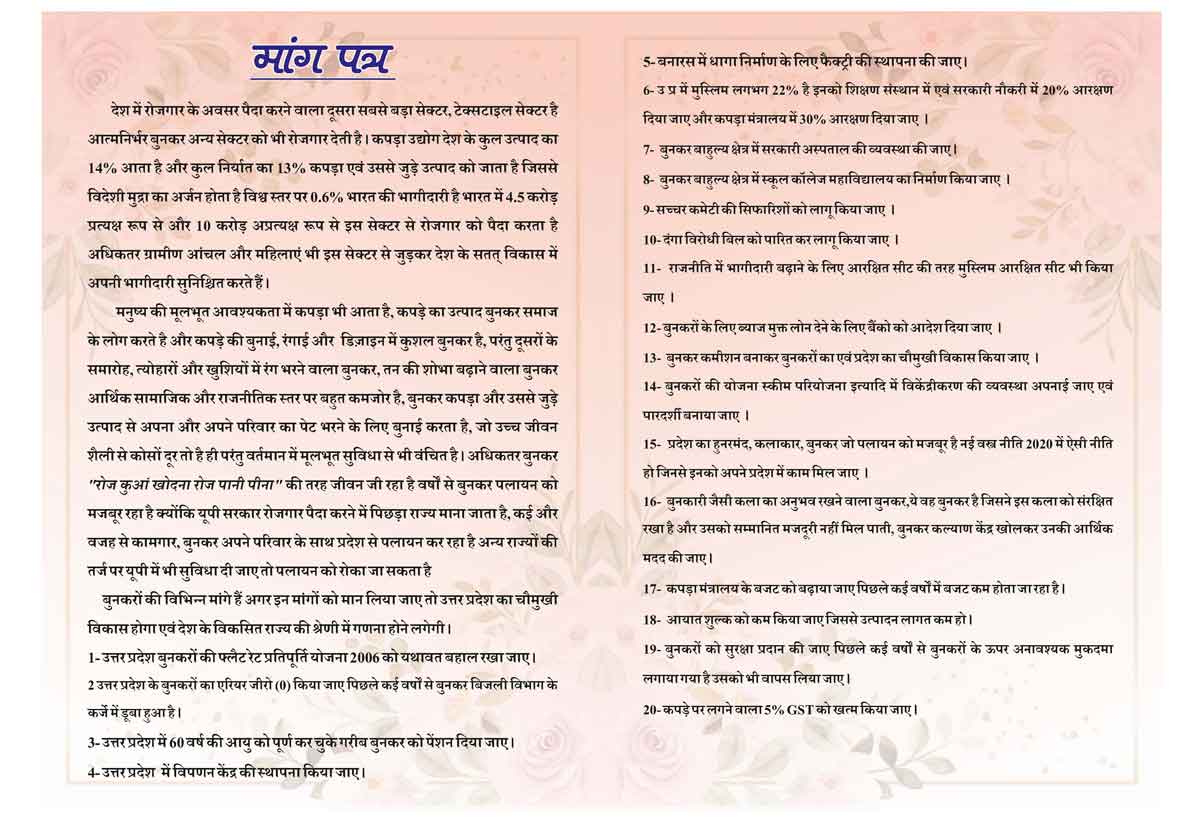 मांग पत्र
देश में रोजगार के अवसर पैदा करने वाला दूसरा सबसे बड़ा सेक्टर, टेक्सटाइल सेक्टर है
आत्मनिर्भर बुनकर अन्य सेक्टर को भी रोजगार देती है। कपड़ा उद्योग देश के कुल उत्पाद का
14% आता है और कुल निर्यात का 13% कपड़ा एवं उससे जुड़े उत्पाद को जाता है जिससे
विदेशी मुद्रा का अर्जन होता है विश्व स्तर पर 0.6% भारत की भागीदारी है भारत में 4.5 करोड़
प्रत्यक्ष रूप से और 10 करोड़ अप्रत्यक्ष रूप से इस सेक्टर से रोजगार को पैदा करता है
अधिकतर ग्रामीण आंचल और महिलाएं भी इस सेक्टर से जुड़कर देश के सतत् विकास में
अपनी भागीदारी सुनिश्चित करते हैं।
मनुष्य की मूलभूत आवश्यकता में कपड़ा भी आता है, कपड़े का उत्पाद बुनकर समाज
के लोग करते है और कपड़े की बुनाई, रंगाई और डिज़ाइन में कुशल बुनकर है, परंतु दूसरों के
समारोह, त्योहारों और खुशियों में रंग भरने वाला बुनकर, तन की शोभा बढ़ाने वाला बुनकर
आर्थिक सामाजिक और राजनीतिक स्तर पर बहुत कमजोर है, बुनकर कपड़ा और उससे जुड़े
उत्पाद से अपना और अपने परिवार का पेट भरने के लिए बुनाई करता है, जो उच्च जीवन
शैली से कोसों दूर तो है ही परंतु वर्तमान में मूलभूत सुविधा से भी वंचित है। अधिकतर बुनकर
"रोज कुआं खोदना रोज पानी पीना" की तरह जीवन जी रहा है वर्षों से बुनकर पलायन को
मजबूर रहा है क्योंकि यूपी सरकार रोजगार पैदा करने में पिछड़ा राज्य माना जाता है, कई और
वजह से कामगार, बुनकर अपने परिवार के साथ प्रदेश से पलायन कर रहा है अन्य राज्यों की
तर्ज पर यूपी में भी सुविधा दी जाए तो पलायन को रोका जा सकता है
बुनकरों की विभिन्न मांगे हैं अगर इन मांगों को मान लिया जाए तो उत्तर प्रदेश का चौमुखी
विकास होगा एवं देश के विकसित राज्य की श्रेणी में गणना होने लगेगी।
1- उत्तर प्रदेश बुनकरों की फ्लैट रेट प्रतिपूर्ति योजना 2006 को यथावत बहाल रखा जाए।
2 उत्तर प्रदेश के बुनकरों का एरियर जीरो (0) किया जाए पिछले कई वर्षों से बुनकर बिजली विभाग के
कर्जे में डूबा हुआ है।
3- उत्तर प्रदेश में 60 वर्ष की आयु को पूर्ण कर चुके गरीब बुनकर को पेंशन दिया जाए।
4- उत्तर प्रदेश में विपणन केंद्र की स्थापना किया जाए।
5- बनारस में धागा निर्माण के लिए फैक्ट्री की स्थापना की जाए।
6- उ प्र में मुस्लिम लगभग 22% है इनको शिक्षण संस्थान में एवं सरकारी नौकरी में 20% आरक्षण
दिया जाए और कपड़ा मंत्रालय में 30% आरक्षण दिया जाए ।
7- बुनकर बाहुल्य क्षेत्र में सरकारी अस्पताल की व्यवस्था की जाए।
8- बुनकर बाहुल्य क्षेत्र में स्कूल कॉलेज महाविद्यालय का निर्माण किया जाए ।
9- सच्चर कमेटी की सिफारिशों को लागू किया जाए ।
10- दंगा विरोधी बिल को पारित कर लागू किया जाए ।
11- राजनीति में भागीदारी बढ़ाने के लिए आरक्षित सीट की तरह मुस्लिम आरक्षित सीट भी किया
जाए ।
12- बुनकरों के लिए ब्याज मुक्त लोन देने के लिए बैंको को आदेश दिया जाए ।
13- बुनकर कमीशन बनाकर बुनकरों का एवं प्रदेश का चौमुखी विकास किया जाए ।
14- बुनकरों की योजना स्कीम परियोजना इत्यादि में विकेंद्रीकरण की व्यवस्था अपनाई जाए एवं
पारदर्शी बनाया जाए ।
15- प्रदेश का हुनरमंद, कलाकार, बुनकर जो पलायन को मजबूर है नई वस्त्र नीति 2020 में ऐसी नीति
हो जिनसे इनको अपने प्रदेश में काम मिल जाए ।
16- बुनकारी जैसी कला का अनुभव रखने वाला बुनकर,ये वह बुनकर है जिसने इस कला को संरक्षित
रखा है और उसको सम्मानित मजदूरी नहीं मिल पाती, बुनकर कल्याण केंद्र खोलकर उनकी आर्थिक
मदद की जाए।
17- कपड़ा मंत्रालय के बजट को बढ़ाया जाए पिछले कई वर्षों में बजट कम होता जा रहा है।
18- आयात शुल्क को कम किया जाए जिससे उत्पादन लागत कम हो।
19- बुनकरों को सुरक्षा प्रदान की जाए पिछले कई वर्षों से बुनकरों के ऊपर अनावश्यक मुकदमा
लगाया गया है उसको भी वापस लिया जाए।
20- कपड़े पर लगने वाला 5% GST को खत्म किया जाए।